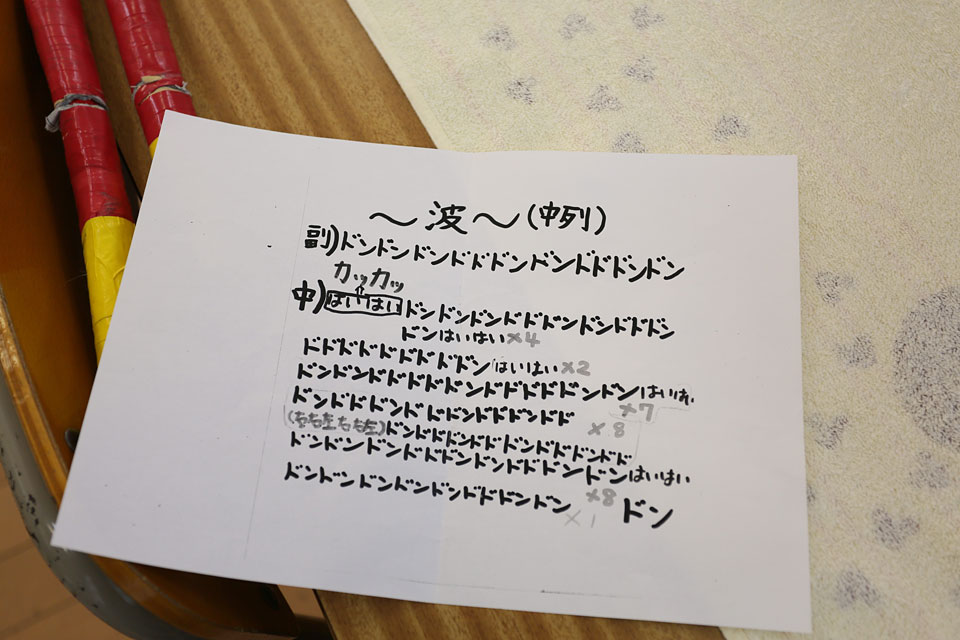 ～波～(中列)
副)ドンドンドンドドドンドンドドドンドン
カッカッ
⇧
中)はいはいドンドンドンドドドンドンドドドン
ドンはいはい×4
ドドドドドドドドドン はいはい×2
ドンドンドドドドドンドドドドドンドン はいはい
×7
ドンドドドンドドドンドドドンドド ×8
(右右左右右左)ドンドドドンドドドンドドドンドド
ドンドンドンドドドンドンドドドンドンはいはい
ドンドンドンドンドンドドドンドン ×8 ドン
×1